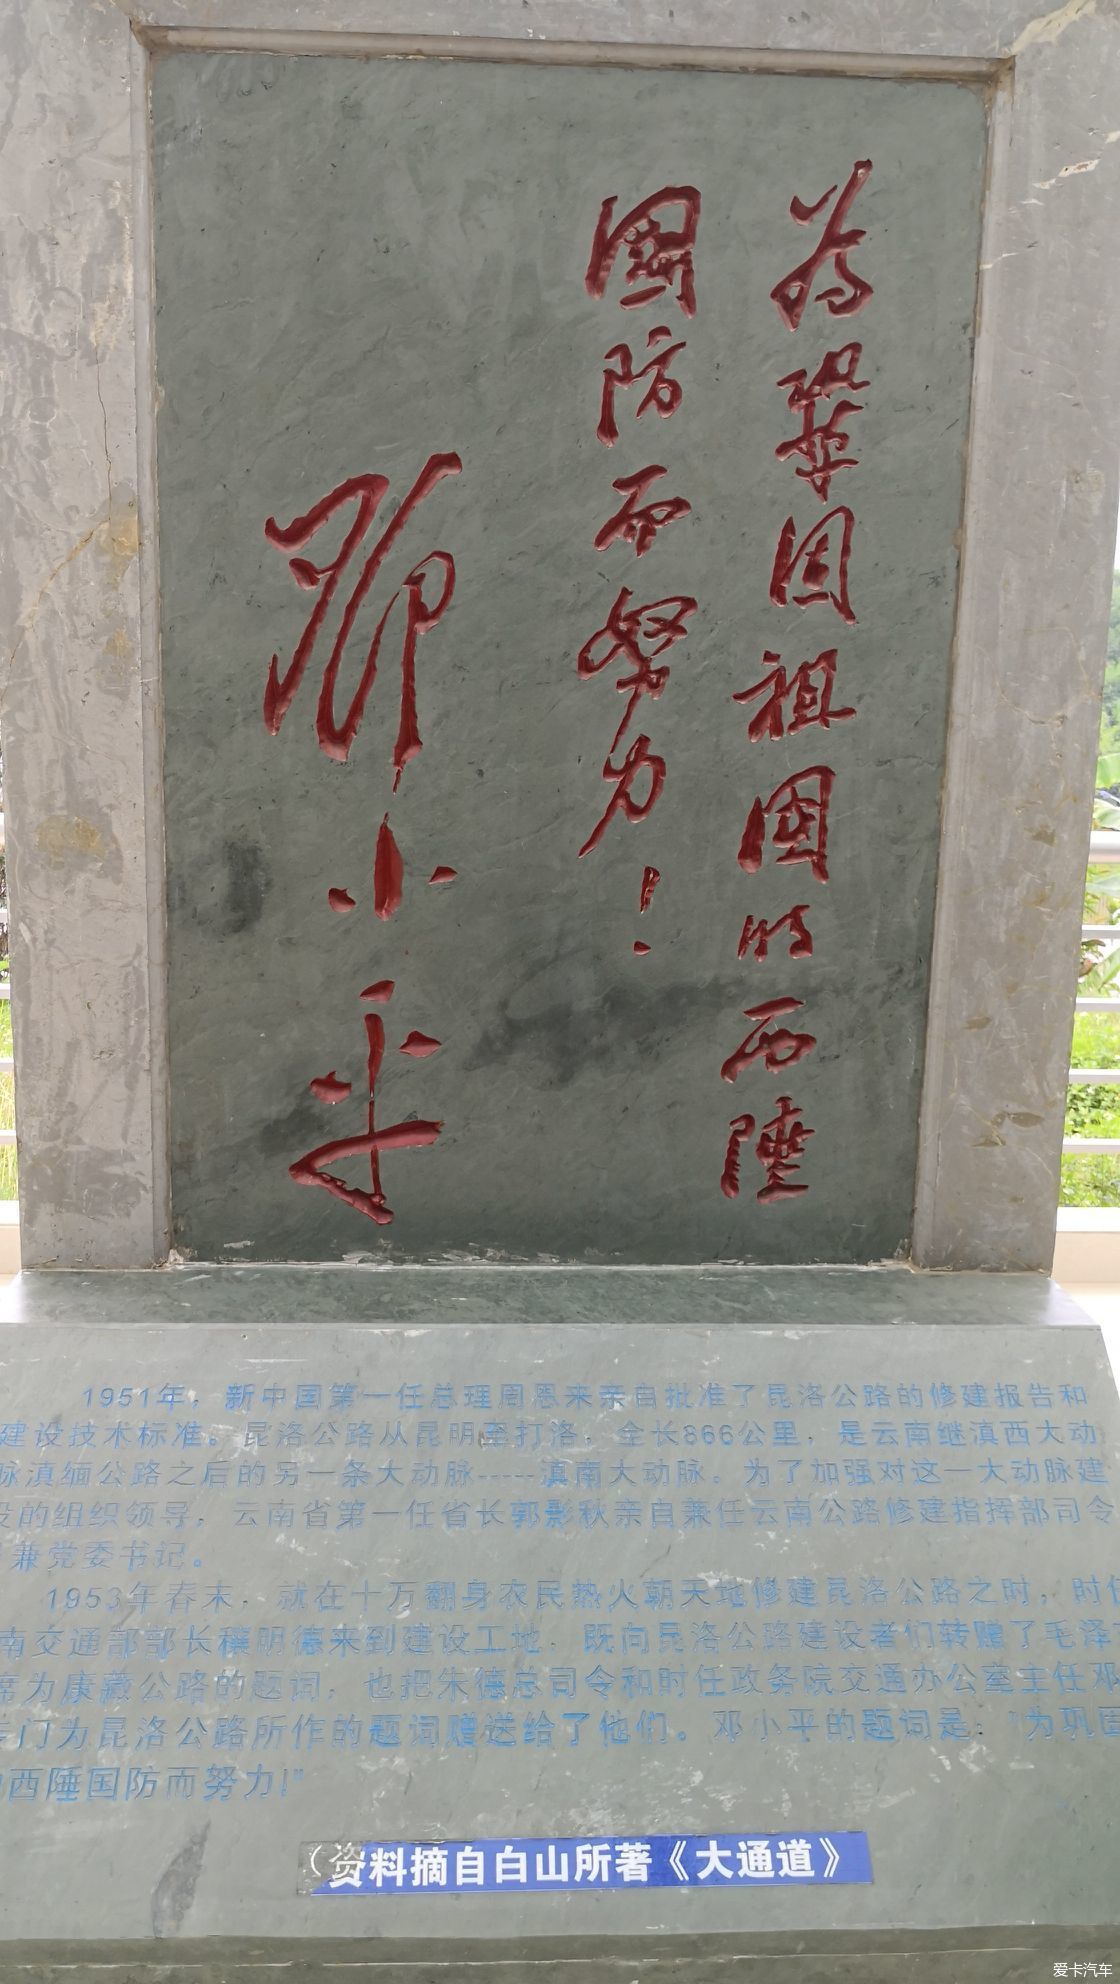 为鞏固祖國的西陲
國防而努力！
邓小平
1951年，新中国第一任总理周恩来亲自批准了昆洛公路的修建报告和
建设技术标准。昆洛公路从昆明至打洛，全长866公里，是云南继滇西大动
脉滇缅公路之后的另一条大动脉-----滇南大动脉。为了加强对这一大动脉建
设的组织领导，云南省第一任省长郭影秋亲自兼任云南公路修建指挥部司令
兼党委书记。
1953年春末，就在十万翻身农民热火朝天地修建昆洛公路之时，时任
南交通部部长穰明德来到建设工地，既向昆洛公路建设者们转赠了毛泽
席为康藏公路的题词，也把朱德总司令和时任政务院交通办公室主任邓
专门为昆洛公路所作的题词赠送给了他们。邓小平的题词是："为巩固
的西陲国防而努力!"
（资料摘自白山所著《大通道》
爱卡汽车